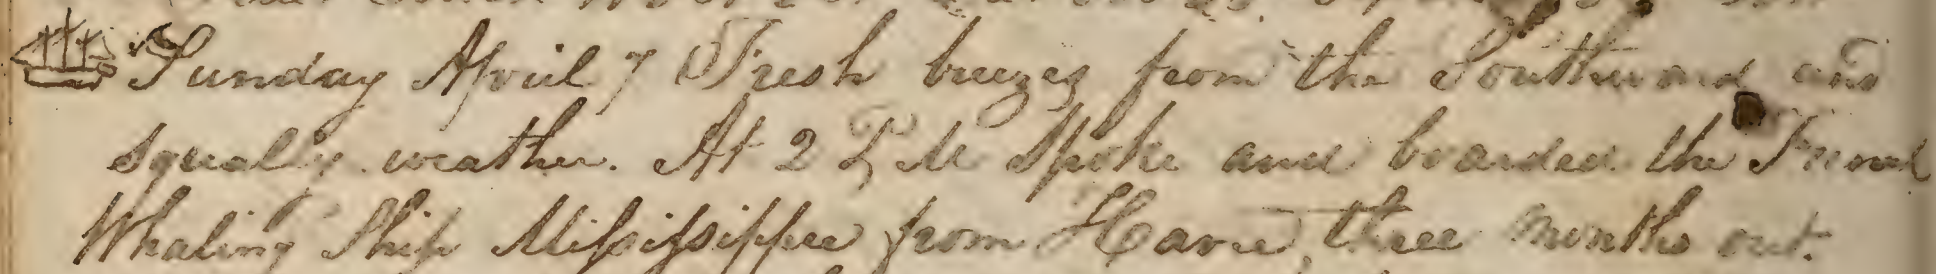 Sunday April 7 Fresh breezes from the Southward and
Squaly weather. At 2 P, M Spoke and boarded the French
Whaling Ship Missisippee from Havre, three months out.